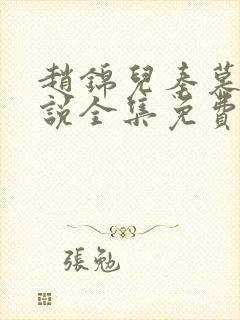 趙錦兒秦慕
說全集免費
張勉